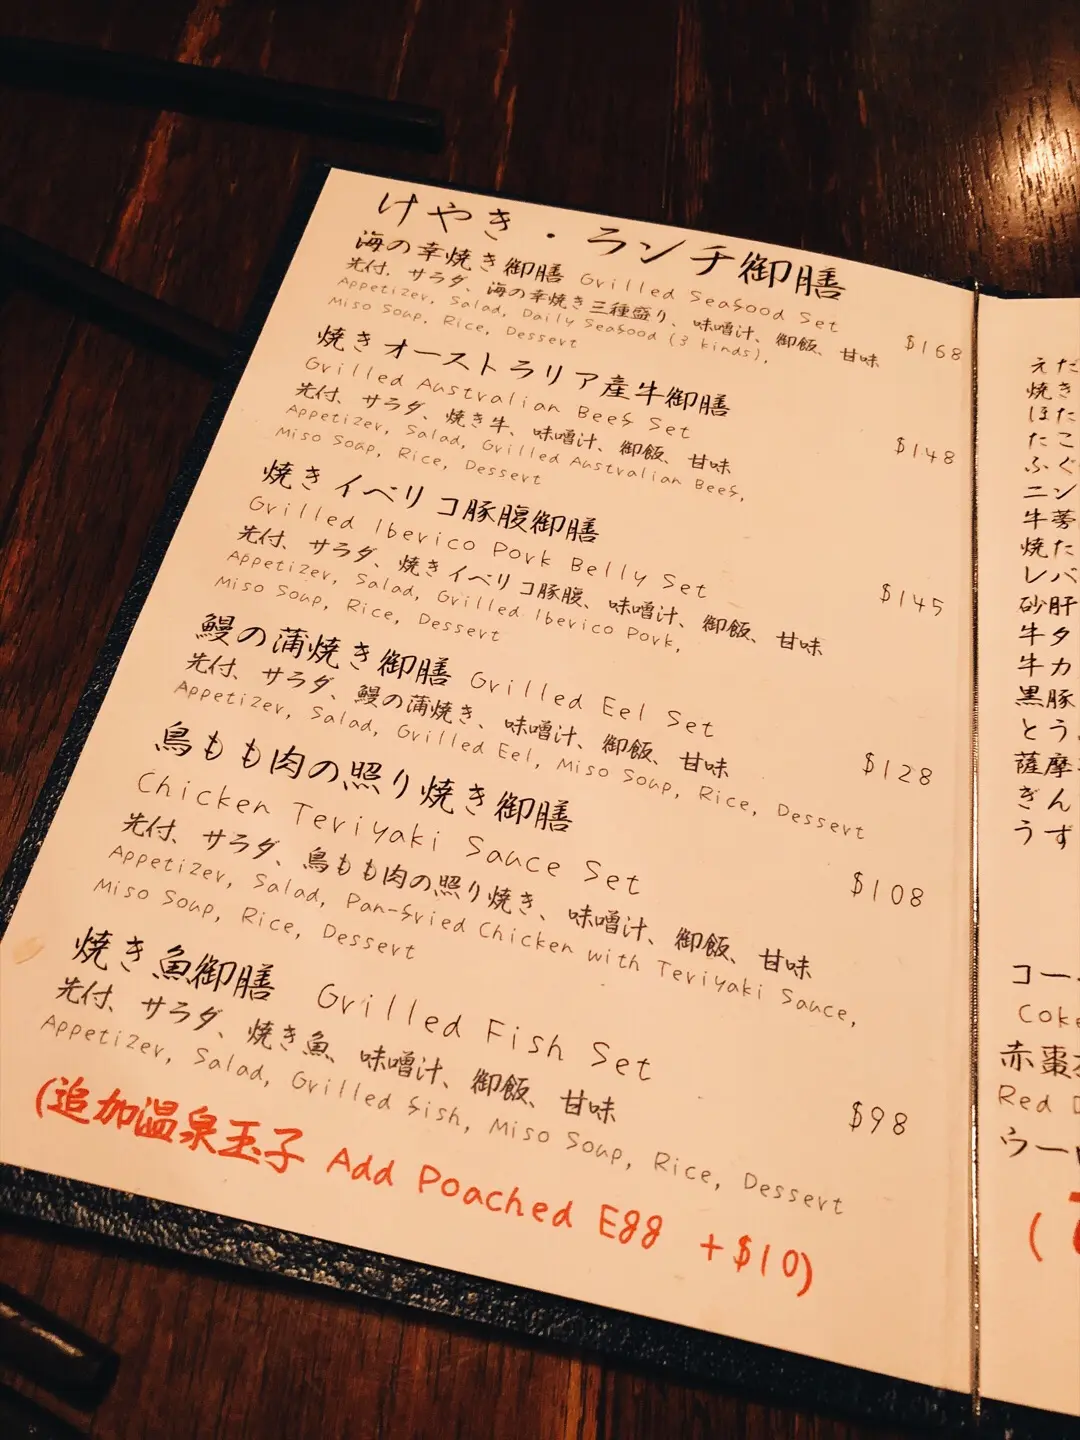 けやき・ランチ御膳
海の幸焼き御膳 Grilled Seafood Set
先付、サラダ、海の幸焼き三種盛り、味噌汁、御飯、甘味 $168
Appetizer, Salad, Daily Seafood (3 kinds),
Miso Soup, Rice, Dessert
焼きオーストラリア産牛御膳
Grilled Australian Beef Set
先付、サラダ、焼き牛、味噌汁、御飯、甘味 $148
Appetizer, Salad, Grilled Australian Beef,
Miso Soap, Rice, Dessert
焼きイベリコ豚腹御膳
Grilled Iberico Pork Belly Set
先付、サラダ、焼きイベリコ豚腹、味噌汁、御飯、甘味 $145
Appetizer, Salad, Grilled Iberico Pork,
Miso Soup, Rice, Dessert
鰻の蒲焼き御膳 Grilled Eel Set
先付、サラダ、鰻の蒲焼き、味噌汁、御飯、甘味 $128
Appetizer, Salad, Grilled Eel, Miso Soup, Rice, Dessert
鳥もも肉の照り焼き御膳
Chicken Teriyaki Sauce Set $108
先付、サラダ、鳥もも肉の照り焼き、味噌汁、御飯、甘味
Appetizer, Salad, Pan-fried Chicken with Teriyaki Sauce,
Miso Soup, Rice, Dessert
焼き魚御膳 Grilled Fish Set $98
先付、サラダ、焼き魚、味噌汁、御飯、甘味
Appetizer, Salad, Grilled fish, Miso Soup, Rice, Dessert
(追加温泉玉子 Add Poached Egg +$10)
えだ
焼き
ほた
たこ
ふぐ
ニン
牛蒡
焼た
レバ
砂肝
牛タ
牛カ
黒豚
とう
薩摩
ぎん
うず
コー
Coke
赤棗
Red D
ウーロ
(